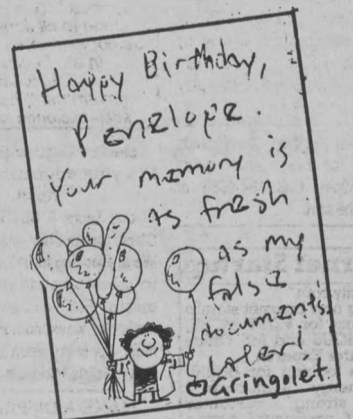 Happy Birthday,
Penelope.
Your memory is
as fresh
as my
false
documents.
Gringolet.